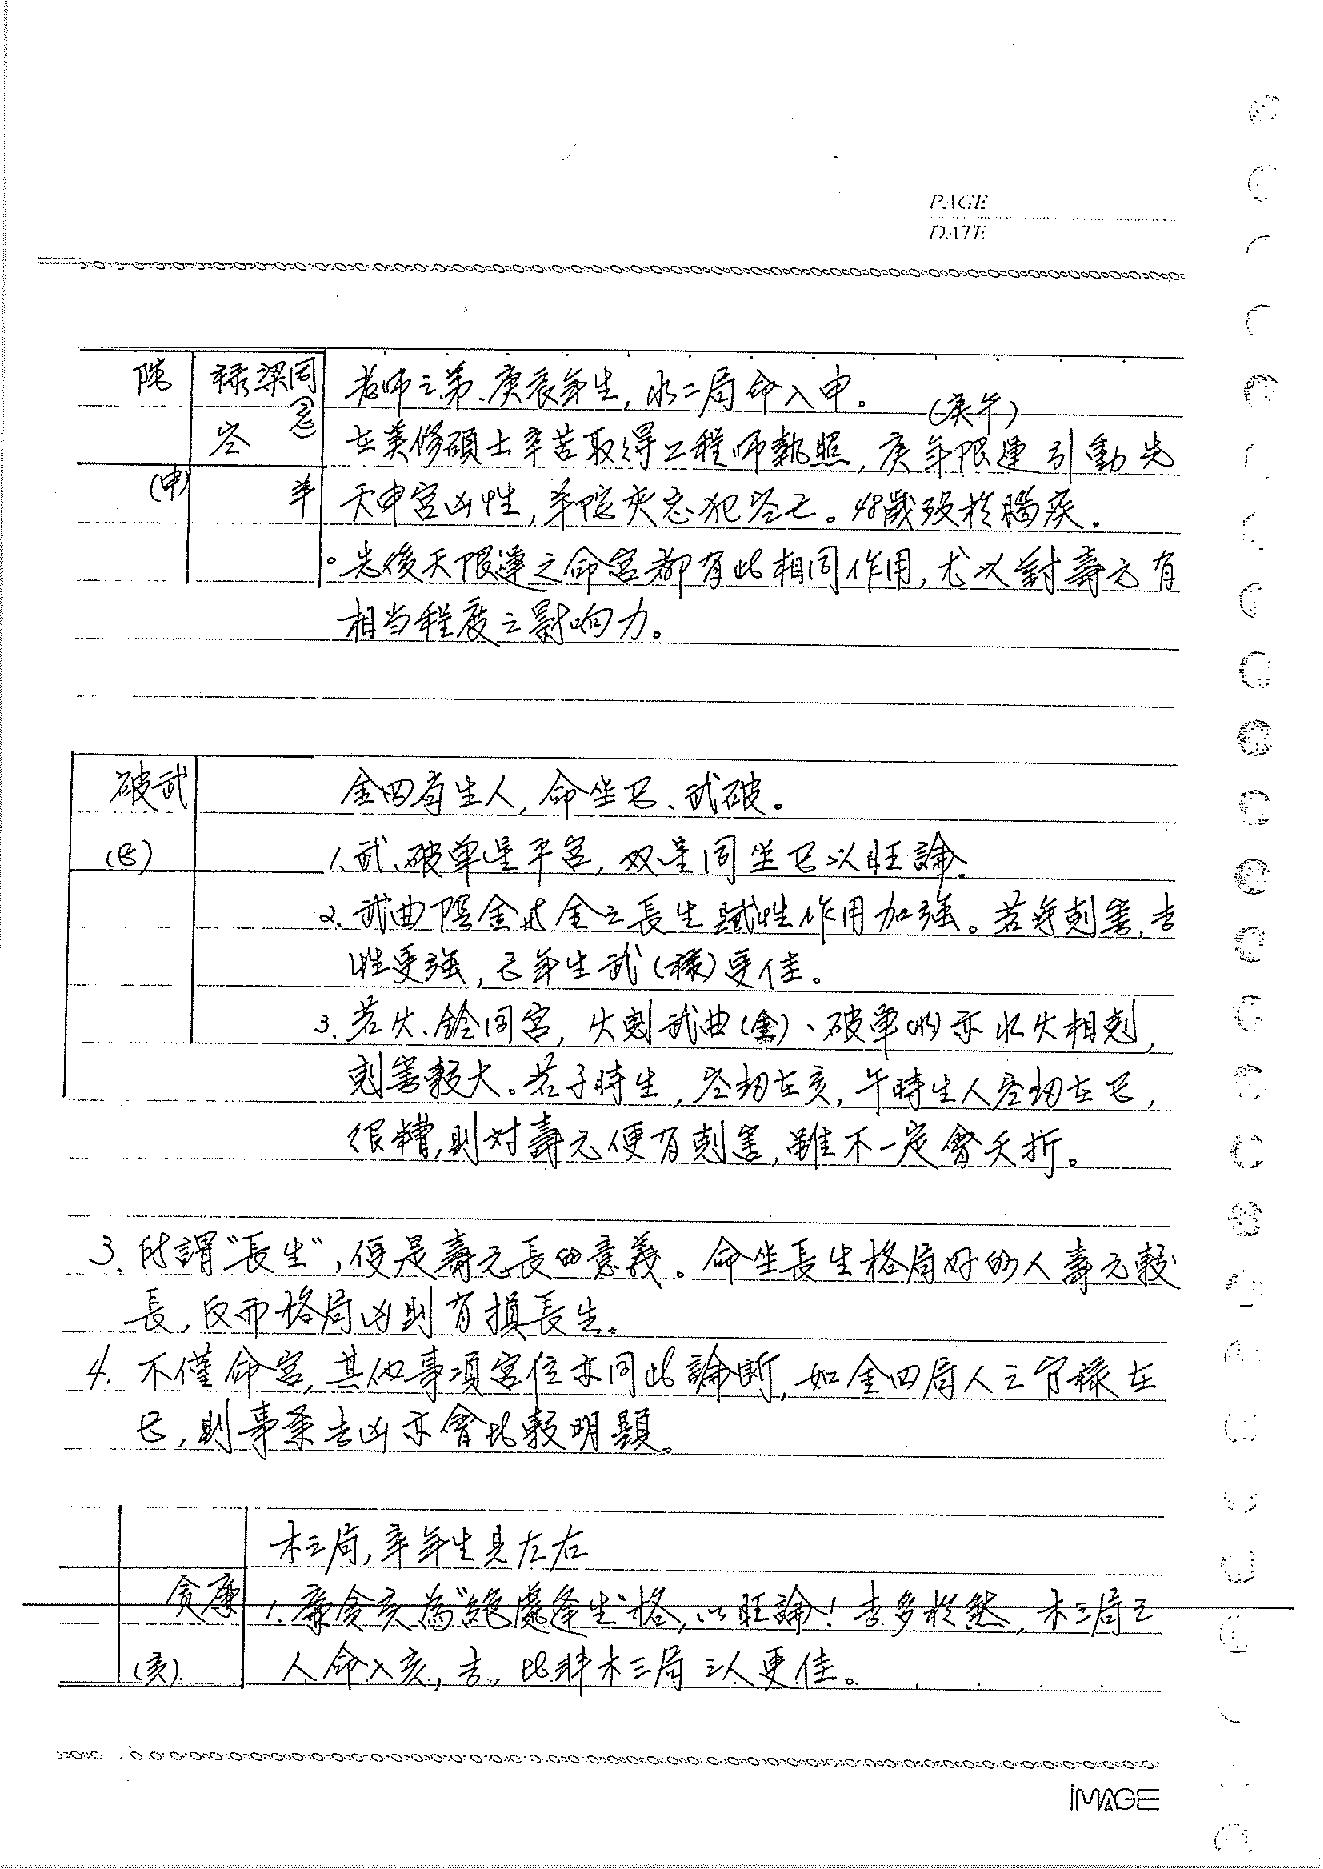 PAGE
DATE
陀 祿梁同 老師之弟、庚辰年生，水二局命入申。
(忌) (庚午)
空 在美修碩士辛苦取得工程師執照，庚年限運引動先
(申) 羊 天申宮凶性，羊陀夾忌犯空亡。48歲歿於腦疾。
。先後天限運之命宮都有此相同作用，尤以對壽元有
相当程度之影响力。
破武 金四局生人，命坐巳、武破。
(巳) 1.武、破單星平宮，双星同坐巳以旺論。
2.武曲陰金坐金之長生賦性作用加強。若無剋害，吉
性更強，己年生武(祿)更佳。
3.若火、鈴同宮，火剋武曲(金)、破軍(水)亦水火相剋，
剋害較大。若子時生，空劫在亥，午時生人空劫在巳，
很糟，則对壽元便有剋害，雖不一定會夭折。
3.所謂"長生"，便是壽元長的意義。命坐長生格局好的人壽元較
長，反而格局凶則有損長生。
4.不僅命宮，其他事項宮位亦同此論斷，如金四局人之官祿在
巳，則事業吉凶亦會比較明顯。
木三局，辛年生見左右
貪廉 1.廉貪亥為"絕處逢生"格，以旺論！吉多於然，木三局之
(亥) 人命入亥，吉，比非木三局之人更佳。
IMAGE